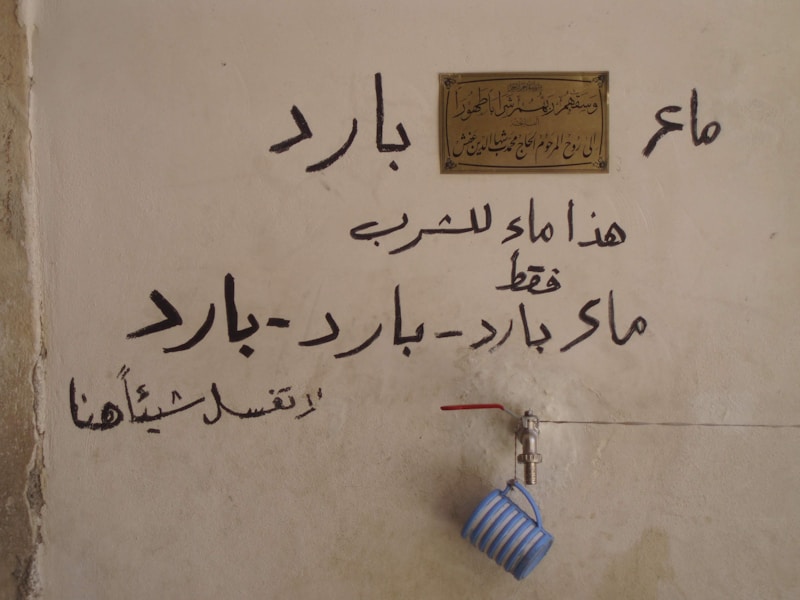 ماء بارد
وسقهم ربهم شرابا طهورا
الى روح المرحوم الحاج محمد شهاب الدين
هذا ماء للشرب
فقط
ماء بارد - بارد - بارد
لا تغسل شيئاً هنا